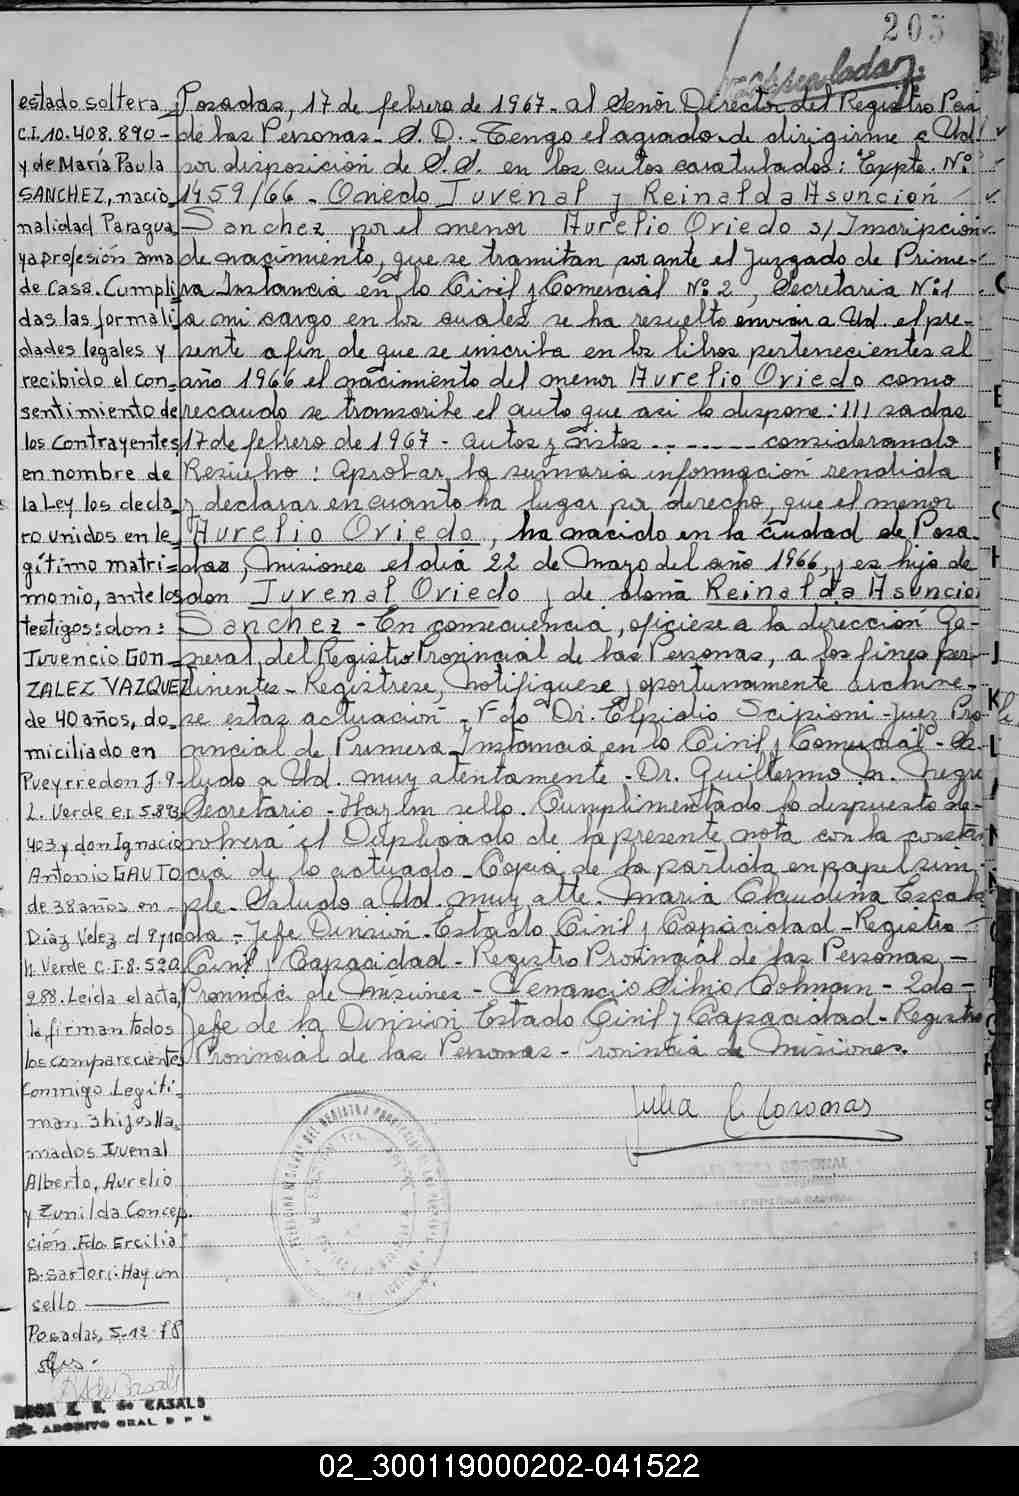 205
estado soltera
C.I. 10.408.890-
y de María Paula
SANCHEZ, nacio-
nalidad Paragua-
ya profesión ama
de casa. Cumpli
das las formali
dades legales y
recibido el con=
sentimiento de
los contrayentes
en nombre de
la Ley los decla-
ro unidos en le-
gítimo matri-
monio, ante los
testigos: don:
Juvencio GON-
ZALEZ VAZQUEZ
de 40 años, do-
miciliado en
Pueyrredon J. 9-
L. Verde e.I. 5.893
403 y don Ignacio
Antonio GAUTO
de 38 años en -
Diaz Velez el 9 y 10
h. Verde C.I. 8.520
288. Leída el acta,
la firman todos
los comparecientes
conmigo. Legiti-
man 3 hijos lla-
mados Juvenal
Alberto, Aurelio
y Zunilda Concep-
ción. Fdo. Ercilia
B. Sartori. Hay un
sello
Posadas, 5-12-78
ROSA E. R. de CASALS
Posadas, 17 de febrero de 1967- al Señor Director del Registro Pro
de las Personas- S. D.- Tengo el agrado de dirigirme a Ud.
por disposición de S.S. en los autos caratulados: Expte. Nº
1459/66 - Oviedo Juvenal y Reinalda Asunción
Sanchez por el menor Aurelio Oviedo s/ Inscripción
de nacimiento, que se tramitan por ante el Juzgado de Prime-
ra Instancia en lo Civil y Comercial Nº 2, Secretaria Nº 1
a mi cargo en los cuales se ha resuelto enviar a Ud. el pre-
sente a fin de que se inscriba en los libros pertenecientes al
año 1966 el nacimiento del menor Aurelio Oviedo como
recaudo se transcribe el auto que asi lo dispone: /// sadas
17 de febrero de 1967- autos y vistos - - - - - considerando
Resuelvo: Aprobar la sumaria información rendida
y declarar en cuanto ha lugar por derecho, que el menor
Aurelio Oviedo, ha nacido en la ciudad de Posa-
das, Misiones el día 22 de Marzo del año 1966, y es hijo de
don Juvenal Oviedo y de doña Reinalda Asuncion
Sanchez - En consecuencia, ofíciese a la dirección Ge-
neral del Registro Provincial de las Personas, a los fines per-
tinentes- Registrese, notifiquese y oportunamente archive-
se estas actuación - Fdo Dr. Elpidio Scipioni- Juez Pro
vincial de Primera Instancia en lo Civil y Comercial - Sa-
ludo a Ud. muy atentamente - Dr. Guillermo M. Negre
Secretario - Hay un sello. Cumplimentado lo dispuesto de-
volverá el Duplicado de la presente nota con la constan
cia de lo actuado- Copia de la partida en papel sim
ple- Saludo a Ud. muy atte. Maria Claudina Escala
da - Jefe Division. Estado Civil y Capacidad - Registro -
Civil y Capacidad- Registro Provincial de las Personas -
Provincia de Misiones - Venancio Silvio Bohmann - 2do -
Jefe de la División Estado Civil y Capacidad- Registro
Provincial de las Personas - Provincia de Misiones.
Julia C. Coronas
02_300119000202-041522